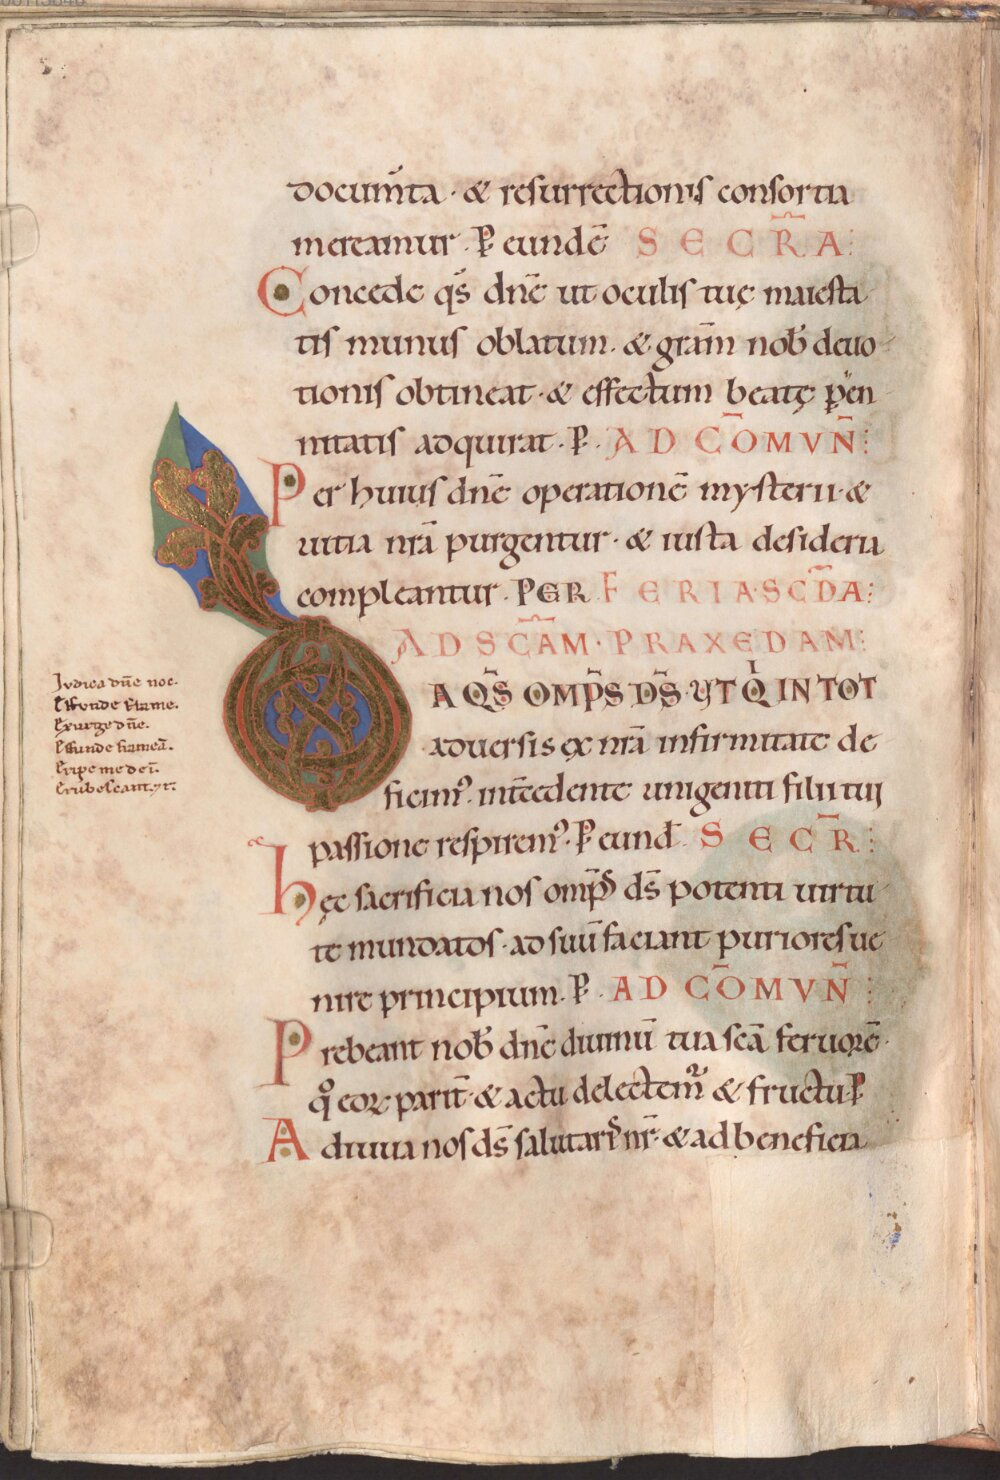 docum̅ta · & resurrectionis consortia
mereamur · P̲ eundē SECR̅A:
Concede qs̄ dn̄e ut oculis tuę maiesta
tis munus oblatum · & grām nob̄ deuo
tionis obtineat · & effectum beatę p̲en
nitatis adquirat · P̲ · AD CŌMVN̄:
Per huius dn̄e operationē mysterii · &
uitia nr̄a purgentur · & iusta desideria
compleantur · PER FERIA · SCD̄A:
AD SC̄AM · PRAXEDAM:
DA QS̄ OMP̄S DS̄ · VT Q̍ IN TOT
aduersis ex nr̄a infirmitate de
ficim᾽ · int̄cedente unigeniti filii tui
passione respirem᾽ · P̲ eund̄ SECR̄:
hęc sacrificia nos omp̄s ds̄ potenti uirtu
te mundatos · ad suū faciant puriores ue
nire principium · P̲ · AD CŌMVN̄:
Prebeant nob̄ dn̄e diuinū tua sc̄a feruorē ·
q̊ eoꝝ parit̄ & actu delectem᾽ & fructu · P̲
Adiuua nos ds̄ salutaris nr̄ · & ad beneficia
Iudica dn̄e noc.
Effunde frame.
Exurge dn̄e.
Effunde frameā.
Eripe me de ī.
Erubescant. yr.